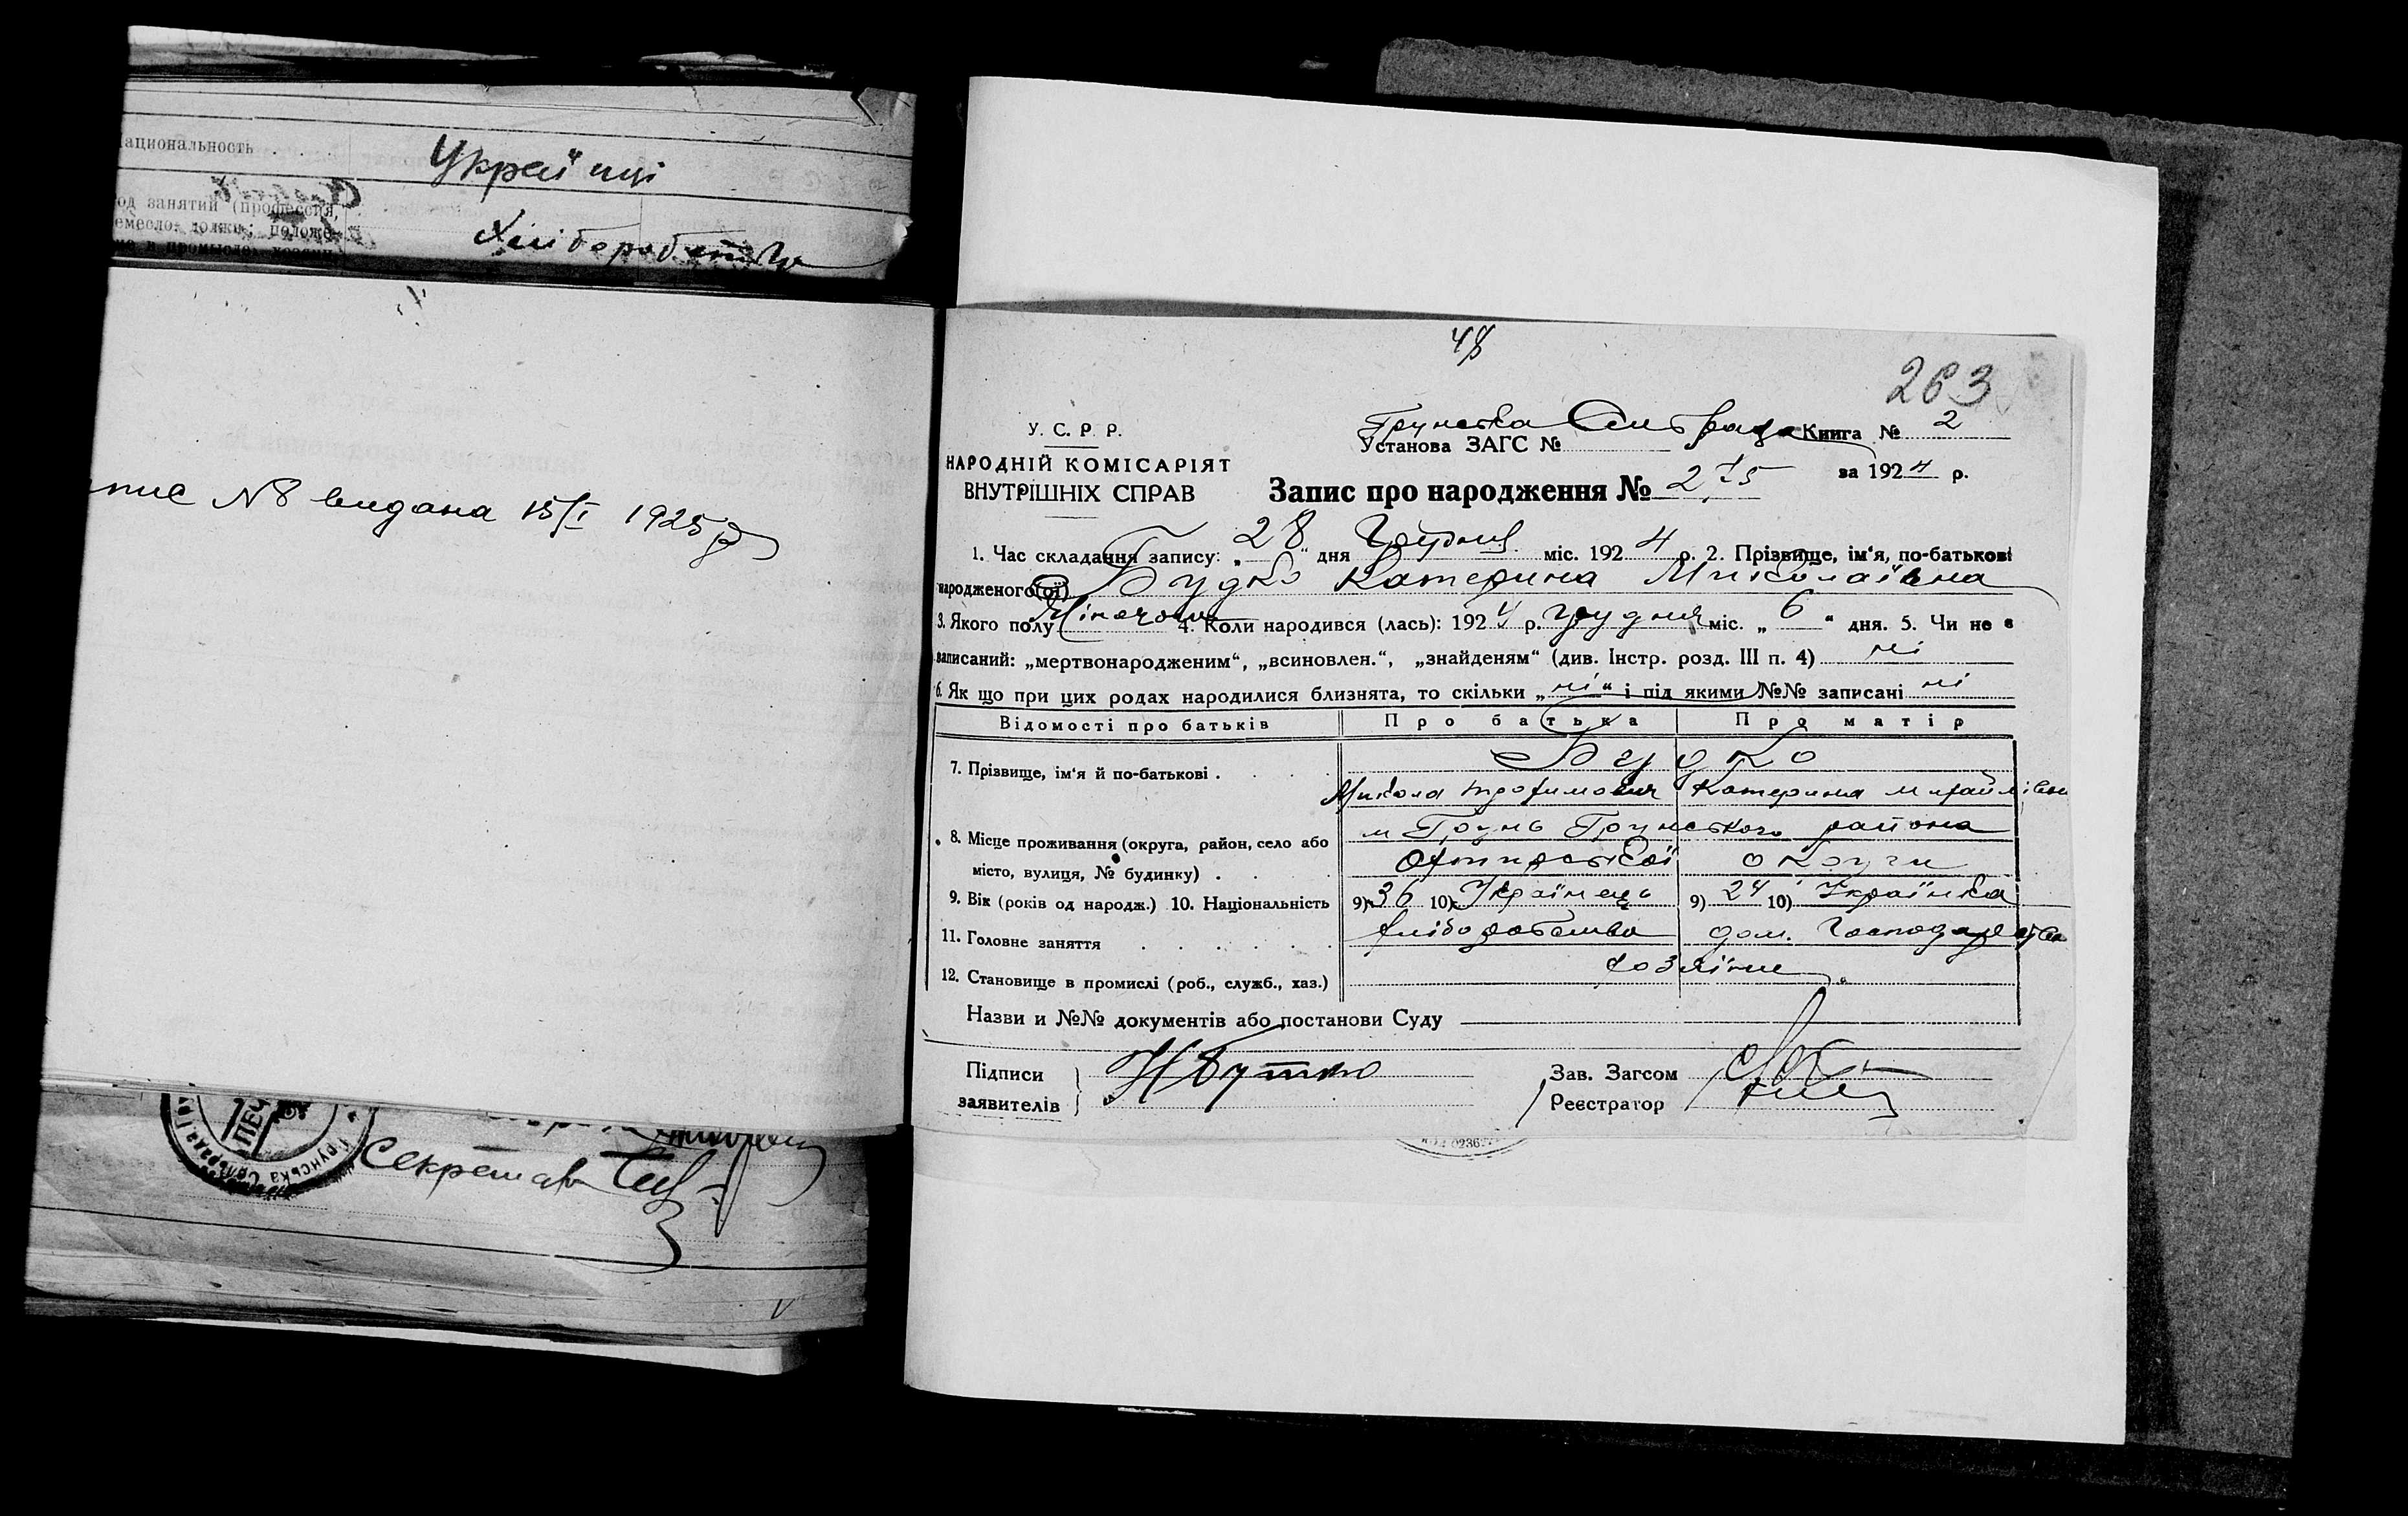 Национальность . .
Україці
од занятий (профессия,
ремесло, должн., положе-
Хліборобство
пис №8 видана 15/I 1925 р
ПЕЧ
Грунська Сельрада
Секретар
48
263
У. С. Р. Р.
НАРОДНІЙ КОМІСАРІЯТ
ВНУТРІШНІХ СПРАВ
Грунська Сельрада
Установа ЗАГС № Книга № 2
Запис про народження № 275 за 1924 р.
1. Час складання запису: „28“ дня Грудня міс. 1924 р. 2. Прізвище, ім‘я, по-батькові
народженого(ої) Будко Катерина Миколаївна
3. Якого полу Жіночого 4. Коли народився (лась): 1924 р. грудня міс. „6“ дня. 5. Чи не є
записаний: „мертвонародженим“, „всиновлен.“, „знайденям“ (див. Інстр. розд. III п. 4) ні
6. Як що при цих родах народилися близнята, то скільки „ні“ і під якими №№ записані ні
Відомості про батьків Про батька Про матір
7. Прізвище, ім‘я й по-батькові . Будко
Микола Трофимович Катерина Михайлівна
8. Місце проживання (округа, район, село або м Грунь Грунського района
місто, вулиця, № будинку) . Охтирської округи
9. Вік (років од народж.) 10. Національність 9) 36 10) Українець 9) 24 10) Українка
11. Головне заняття хліборобство дом. Господарство
12. Становище в промислі (роб., служб., хаз.) хозяїни
Назви и №№ документів або постанови Суду
Підписи
заявителів
НБутко
Зав. Загсом
Реєстратор